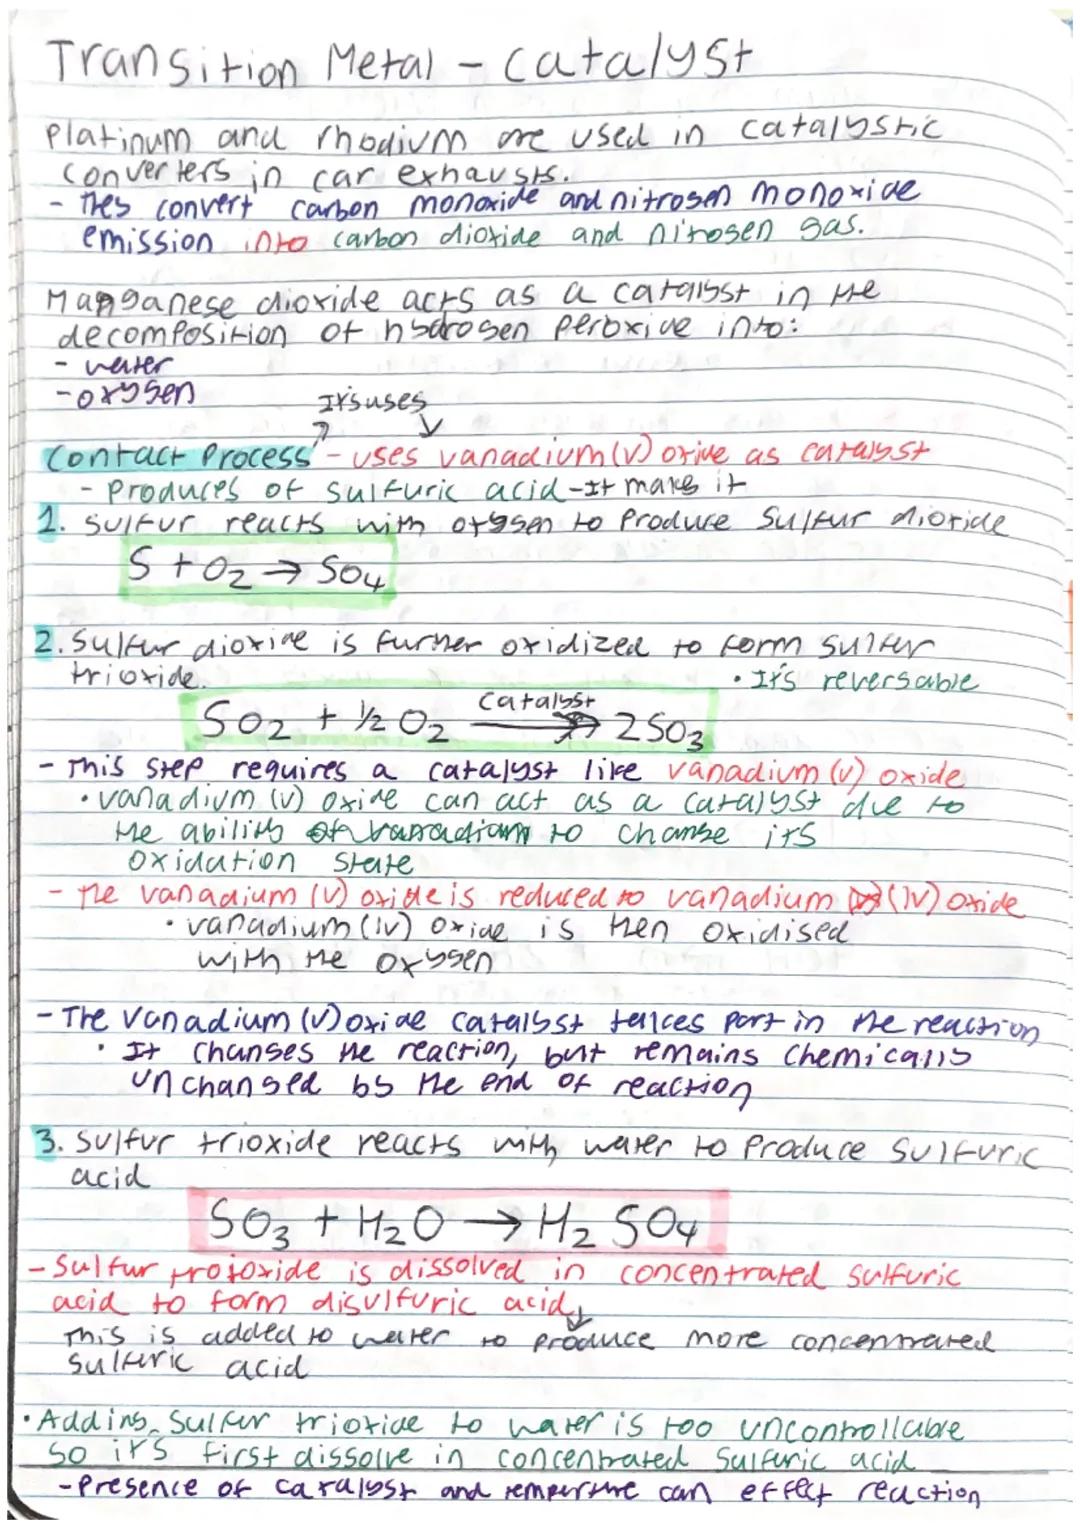 Transition Metal - catalyst
Platinum and rhodium are used in catalystic
converters in car exhausts.
- they convert carbon monoxide and nitrogen monoxide
emission into carbon dioxide and nitrogen gas.
Manganese dioxide acts as a catalyst in the
decomposition of hydrogen peroxide into:
- water
- oxygen
It's uses
Contact Process - uses vanadium (V) oxide as catalyst
- Produces of sulfuric acid - It makes it
1. sulfur reacts with oxygen to produce sulfur dioxide
S + O₂ → SO₄
2. Sulfur dioxide is further oxidized to form sulfur
trioxide.
• It's reversable
catalyst
SO₂ + ½ O₂ → 2SO₃
- This step requires a catalyst like vanadium (V) oxide
• vanadium (V) oxide can act as a catalyst due to
the ability of vanadium to change its
oxidation state
- The vanadium (V) oxide is reduced to vanadium (IV) oxide
• vanadium (IV) oxide is then oxidised
with the oxygen
- The vanadium (V) oxide catalyst takes part in the reaction
• It changes the reaction, but remains chemically
unchanged by the end of reaction
3. sulfur trioxide reacts with water to produce sulfuric
acid
SO₃ + H₂O → H₂SO₄
- Sulfur trioxide is dissolved in concentrated sulfuric
acid to form disulfuric acid
This is added to water to produce more concentrated
sulfuric acid
• Adding sulfur trioxide to water is too uncontrollable
so it's first dissolve in concentrated sulfuric acid
- Presence of catalyst and temperture can effect reaction